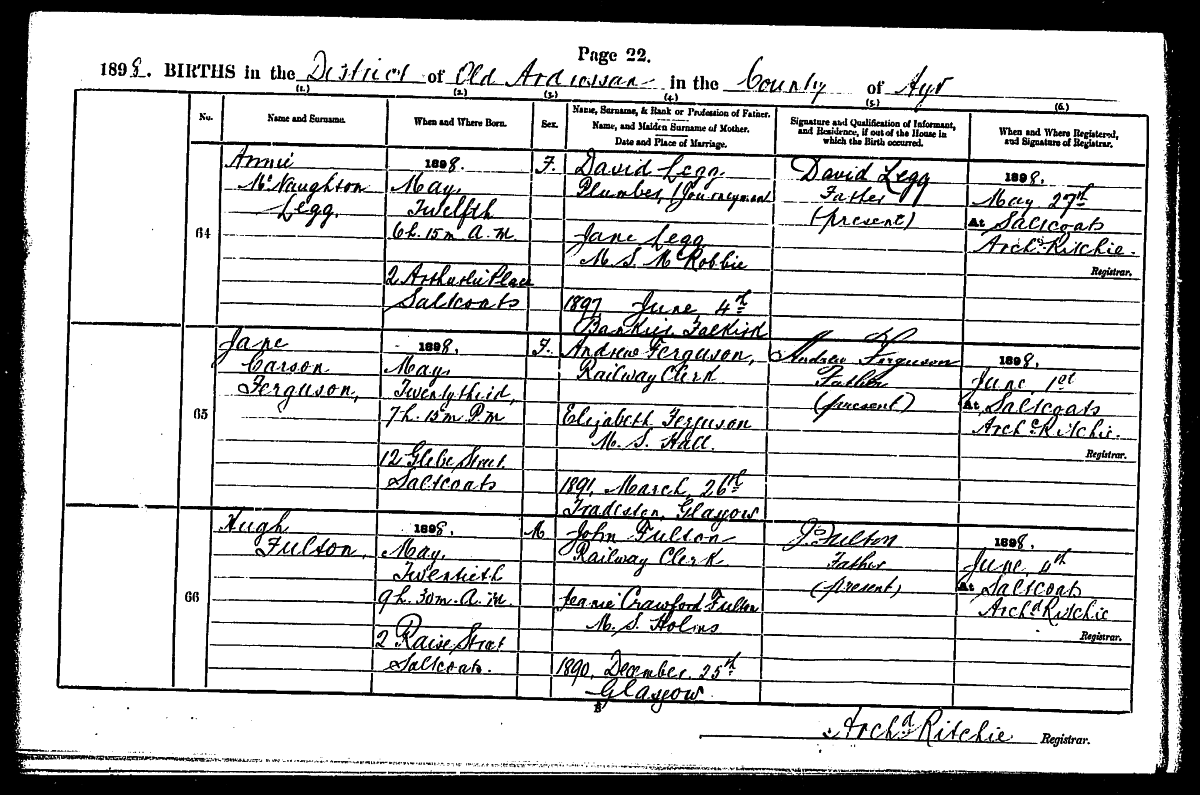 Page 22.
1898. BIRTHS in the District of Old Ardrossan in the County of Ayr
(1.) (2.) (3.) (4.) (5.) (6.)
No.
Name and Surname.
When and Where Born.
Sex.
Name, Surname, & Rank or Profession of Father.
Name, and Maiden Surname of Mother.
Date and Place of Marriage.
Signature and Qualification of Informant,
and Residence, if out of the House in
which the Birth occurred.
When and Where Registered,
and Signature of Registrar.
64
Annie
McNaughton
Legg.
1898.
May,
Twelfth
6h. 15m A.M.
2 Arthurlie Place
Saltcoats
F.
David Legg,
Plumber, (Journeyman)
Jane Legg
M.S. McRobbie
1897 June 4th
Bankier, Falkirk
David Legg
Father
(present)
1898.
May 27th
At Saltcoats
Archd Ritchie.
Registrar.
65
Jane
Carson
Ferguson,
1898.
May,
Twentythird,
7h. 15m P.M
12 Glebe Street
Saltcoats
F.
Andrew Ferguson,
Railway Clerk
Elizabeth Ferguson
M.S. Hall.
1891, March, 26th
Tradeston, Glasgow
Andrew Ferguson
Father
(present)
1898.
June 1st
At Saltcoats
Archd Ritchie.
Registrar.
66
Hugh
Fulton,
1898.
May,
Twentieth
9h. 30m. A.M.
2 Raise Street
Saltcoats.
M
John Fulton
Railway Clerk
Jeanie Crawford Fulton
M.S. Holms
1890, December, 25th
Glasgow
Jo Fulton
Father
(present)
1898.
June 4th
At Saltcoats
Archd Ritchie
Registrar.
Archd Ritchie Registrar.